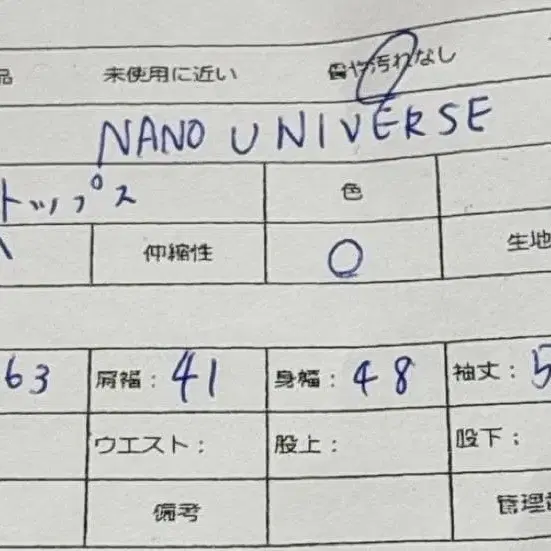 品 未使用に近い 傷や汚れなし
NANO UNIVERSE
トップス 色
伸縮性 ○ 生地
63 肩幅： 41 身幅： 48 袖丈： 5
ウエスト： 股上： 股下：
備考 管理